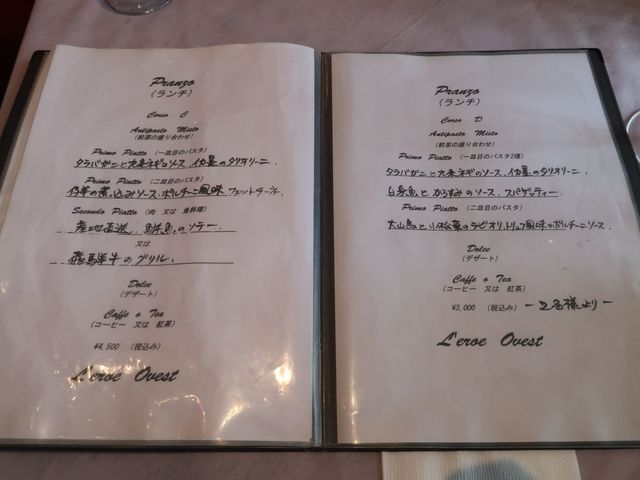 Pranzo
(ランチ)
Corso C
Antipasto Misto
(前菜の盛り合わせ)
Primo Piatto (一皿目のパスタ)
タラバガニと九条ネギのソース イカ墨のタリオリーニ
Primo Piatto (二皿目のパスタ)
仔羊の煮込みソース ポルチーニ風味 フェットチーネ
Secondo Piatto (肉 又は 魚料理)
産地直送 鮮魚のソテー
又は
飛騨牛のグリル
Dolce
(デザート)
Caffe o Tea
(コーヒー 又は 紅茶)
¥4,500 (税込み)
L'eroe Ovest
Pranzo
(ランチ)
Corso D
Antipasto Misto
(前菜の盛り合わせ)
Primo Piatto (一皿目のパスタ2種)
タラバガニと九条ネギのソース イカ墨のタリオリーニ
白身魚とからすみのソース スパゲッティー
Primo Piatto (二皿目のパスタ)
大山鳥と小松菜のラビオリ トリュフ風味のポルチーニソース
Dolce
(デザート)
Caffe o Tea
(コーヒー 又は 紅茶)
¥3,000 (税込み) -2名様より-
L'eroe Ovest